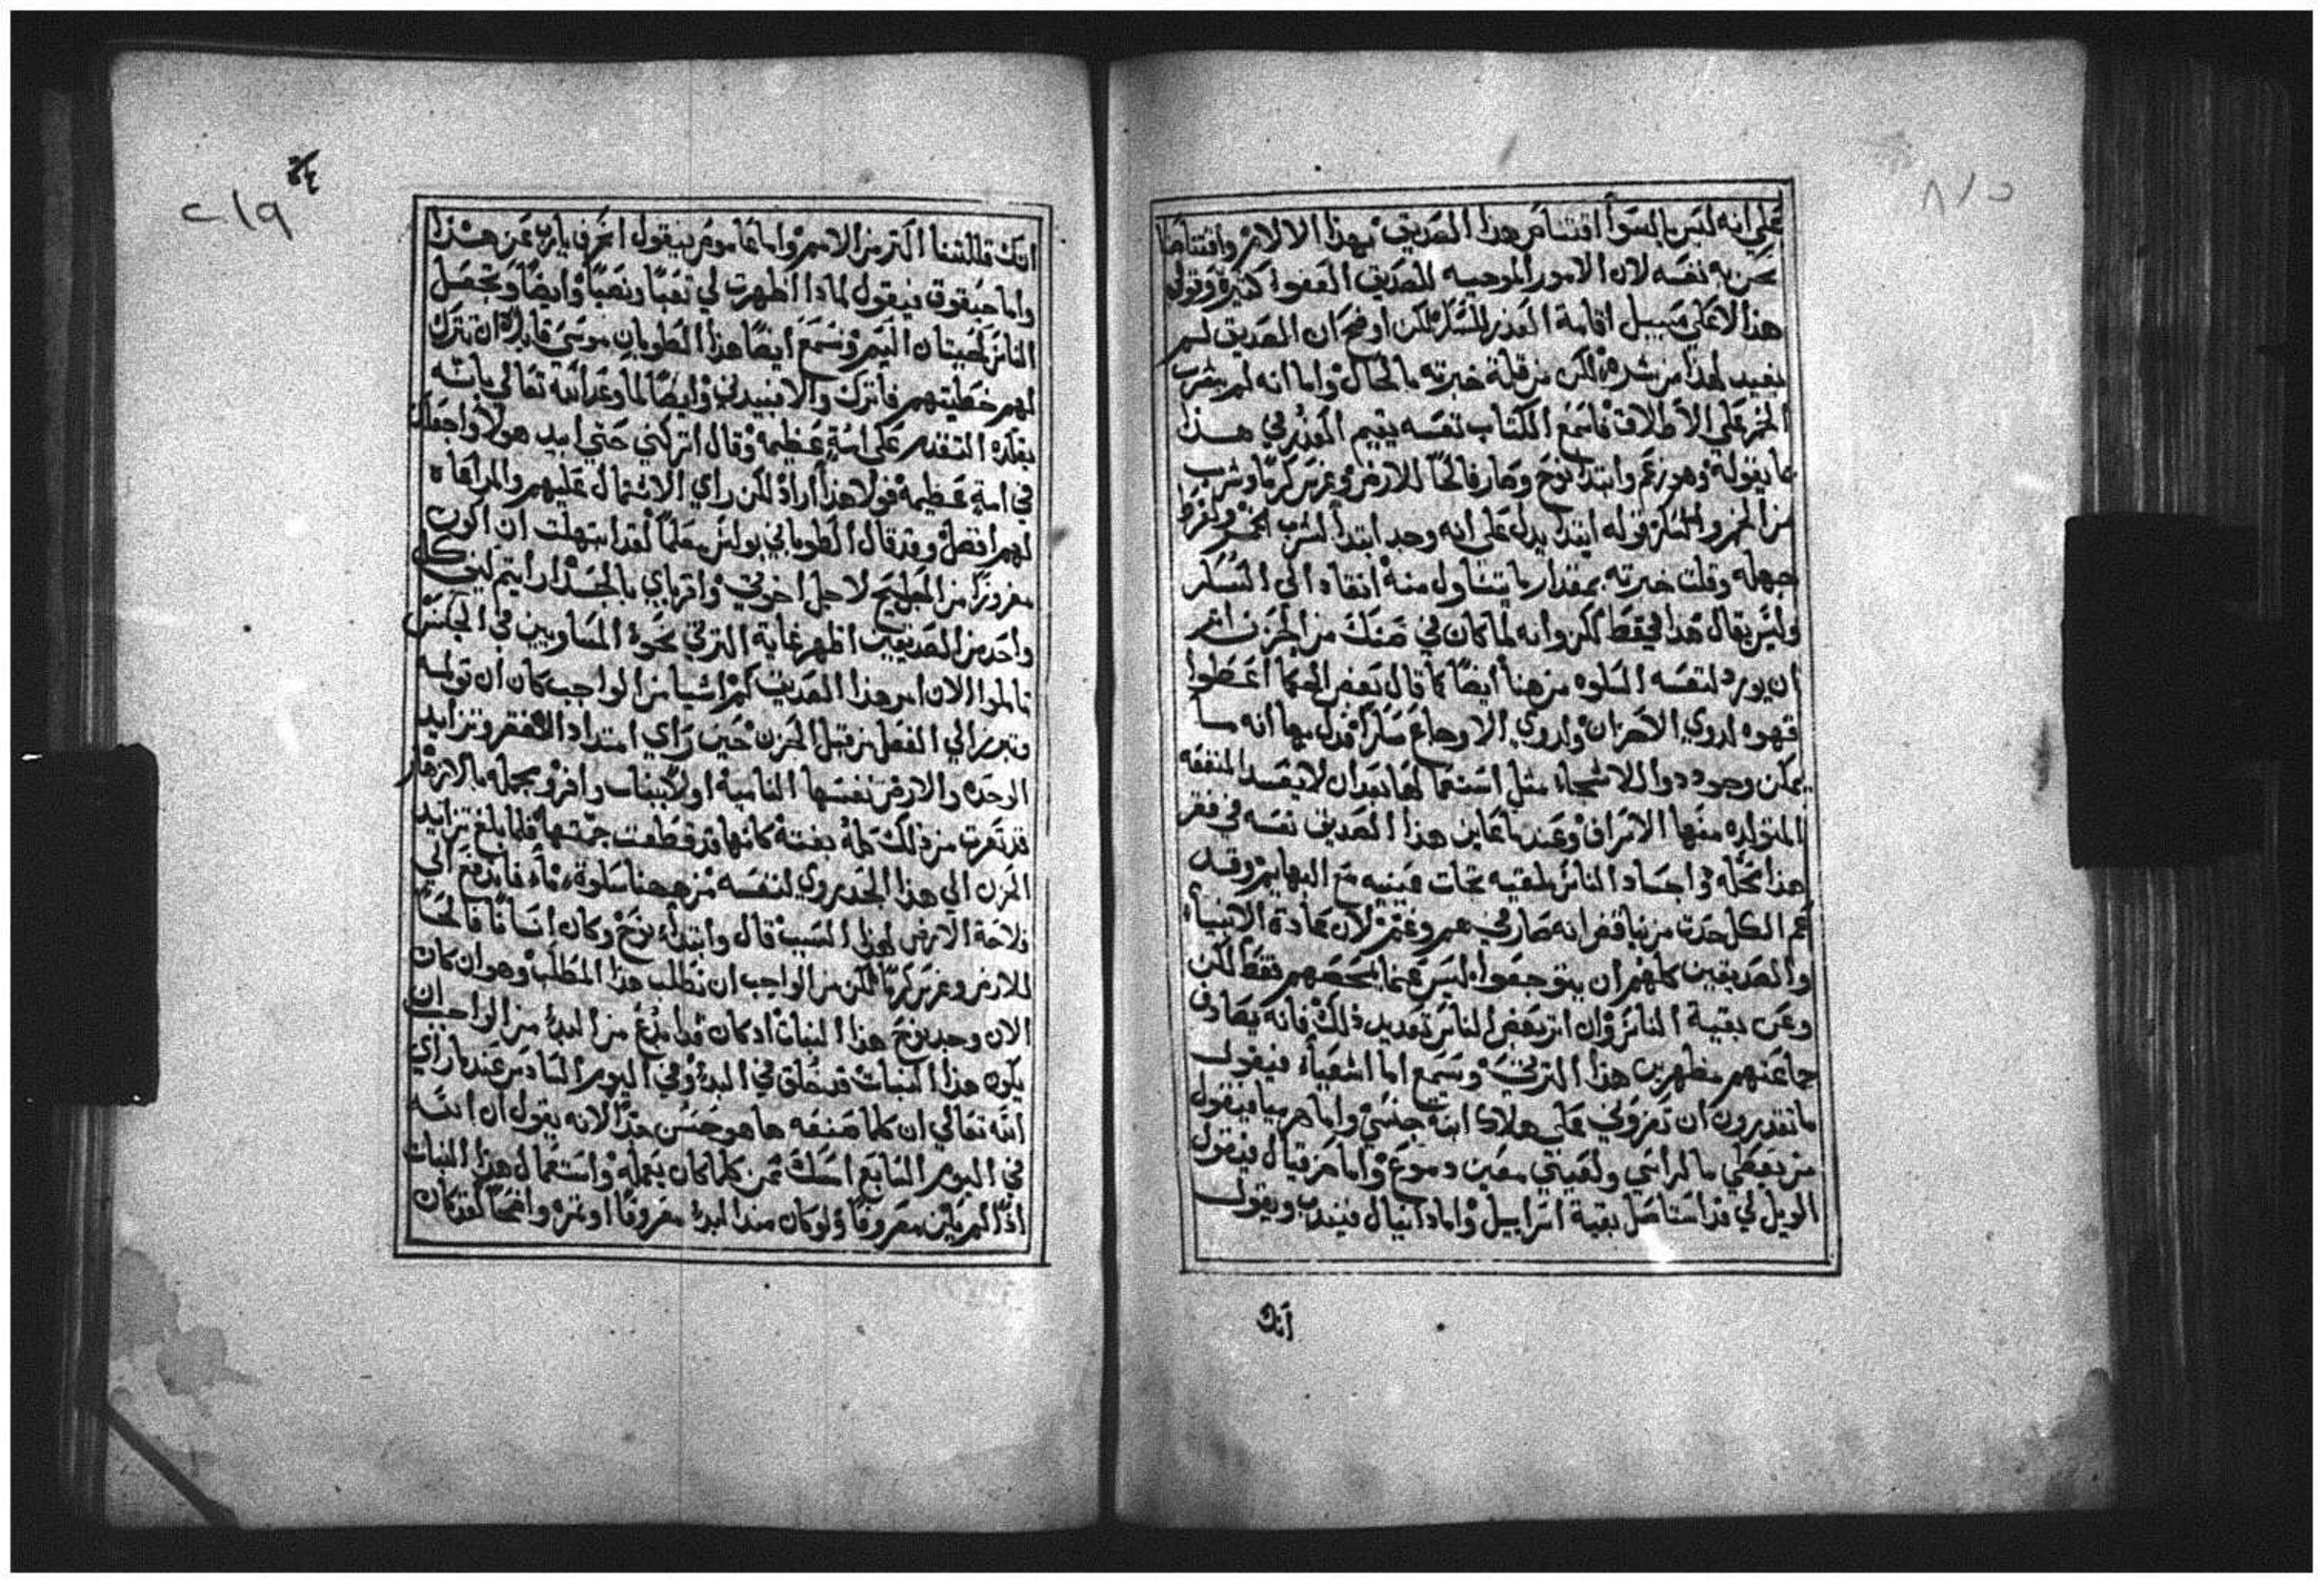 ٨١٥
علي انه ليس بالسوا افتنا من هذا الصديق بهذا الالام وافتناصا
نحن به نفسه لان الامور الموجبه للصديق العفوا كثيره وتولي
هذا لا علي سبيل اقامة العذر للسكر لكن اوضح ان الصديق لم
بغيب لهذا من شره لكن من قلة خبرته بالحال واما انه لم يشرب
الخمر علي الاطلاق فاسمع الكتاب نفسه يقيم العذر في هذا
ما بقوله وهو زعم وابتدا نوح وصار فالحا للارض وغرس كرما وشرب
من الخمر وسكر قوله ابتدا يدل علي انه وجد ابتدا لشرب الخمر ولفرط
جهله وقلت خبرته بمقدار ما يتناول منه انقاد الي السكر
وليس يقال هذا فقط لكن وانه لما كان في ضنك من الحزن اثر
ان يورد لنفسه السلوه من هنا ايضا كما قال بعض الحكما اعطوا
قهوه لذوي الاحزان ولذوي الاوجاع سكرا فدل بها انه ما
يمكن وجود دوا للاشجاء مثل استعمالها بعد ان لا يفسد المنفعه
المتولده منها الاسراف وعند ما عاين هذا الصديق نفسه في فقر
هذا محله واجساد الناس ملقيه تحات عينيه مع البهايم وقد
عم الكل حدث من نبا قفر انه صار في هم وغم لان عادة الانبياء
والصديقين كلهم ان يتوجعوا ليس عما يخصهم فقط لكن
وعن بقية الناس وان اثر بعض الناس تعديد ذلك فانه يصادف
جماعتهم مظهرين هذا الترثي ويسمع اما اشعياء فيقول
ما تقدرون ان تعزوني علي هلاك ابنة جنسي واما هرميا فيقول
من يعطي ما لراسي ولعيني معين دموع واما حزقيال فيقول
الويل لي قد استاصل بقية اسراييل واما دانيال فيندب ويقول
انك
٢١٩
انك قللتنا اكثر من الامم واما عاموص فيقول انحرف يارب عن هذا
واما حبقوق فيقول لماذا اظهرت لي تعبا ونصبا وايضا وتجعل
الناس كحيتان اليم ونسمع ايضا هذا الطوبان موسي قايلا ان تترك
لهم خطيتهم فاترك والا فبيدني وايضا لما وعد الله تعالي بانه
يقلده التقدم علي امة عظيمه وقال اتركني حتي ابيد هولا واجعلك
في امة عظيمه فولا هذا اراد لكن راي الاشتمال عليهم والمراعاه
لهم افضل وقد قال الطوباني بولس معلما لقد ابتهلت ان اكون
مفروزا من المسيح لاجل اخوتي واقرباي بالجسد ارايتم كيف كل
واحد من الصديقين اظهر غاية الترثي نحو المساويين في الجنس
تاملوا الان امر هذا الصديق كم اشيا من الواجب كان ان تولمه
وتبرز الي الفعل من قبل الحزن حين راي امتداد القفر وتزايد
الوحده والارض نفسها النامية اولا بنبات وافر ومجمله بالازهار
قد تعرت من ذلك كله بغتة كانها قد قطعت جمتها فلما بلغ تزايد
الحزن الي هذا الحد يروي لنفسه من ههنا سلوة ما فاندفع الي
فلاحة الارض لهذا السبب قال وابتدا نوح وكان انسانا فالحا
للارض وغرس كرما لكن من الواجب ان نطلب هذا المطلب وهو ان كان
الان وجد نوح هذا النبات اذ كان قد ابدع من البدء من الواجب ان
يكون هذا النبات قد خلق في البدء وفي اليوم السادس عند ما راي
الله تعالي ان كلما صنعه ها هو حسن جدا لانه يقول ان الله
في اليوم السابع امسك عن كلما كان يعمله واستعمال هذا النبات
اذا لم يكن معروفا ولو كان منذ البدء معروفا او ثمره واضحا لقد كان